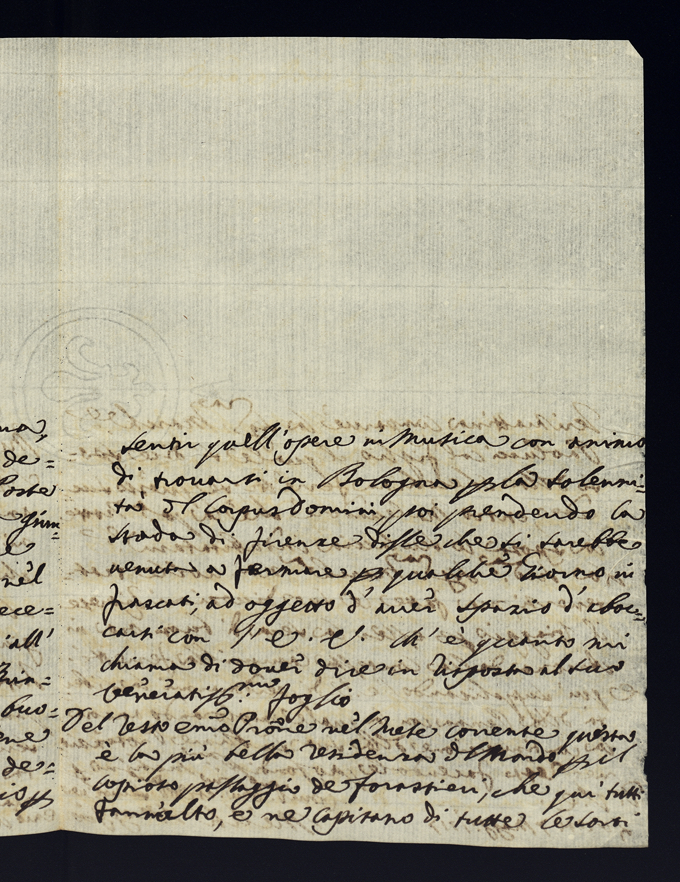 ma,
de=
Poste
e Giun=
e
nel
ece=
all'
Prin=
buo=
ene
de=
sentir quell'opere in Musica con animo
di trovarsi in Bologna p la solenni=
tà del Corpus Domini, poi prendendo la
strada di firenze disse che si sarebbe
venuta a fermare p qualche Giorno in
frascati, ad oggetto d'aver spazio d'aboc=
carsi con V. E. ch'è quanto mi
chiama di dover dire in risposta al suo
veneratiss.mo foglio
Del resto emo Prone nel Mese corrente questa
è la più bella residenza del Mondo p il
copioso passaggio de forastieri, che qui tutti
fann'alto, e ne capitano di tutte le sorti